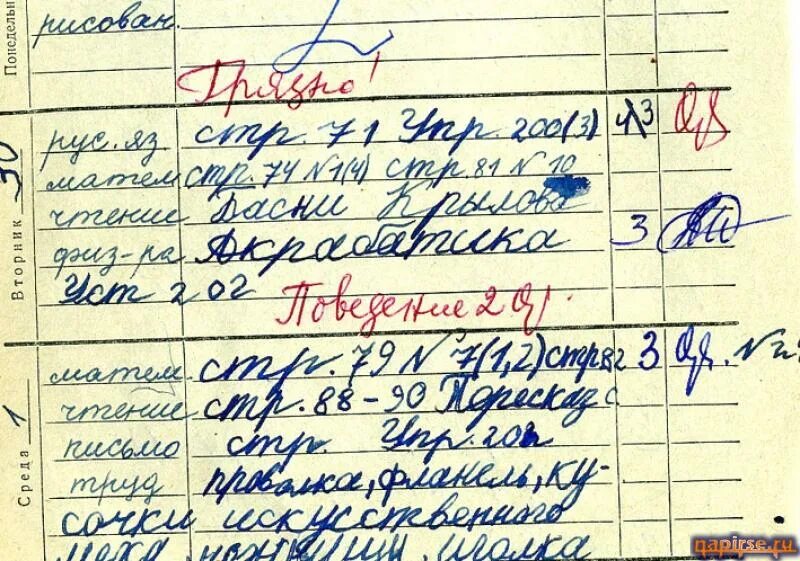 Понедельн
рисован.
Грязно!
Вторник 30
рус. яз стр. 71 Упр. 200(3) 3
матем стр. 74 №1(4) стр. 81 № 10
чтение Басни Крылова
физ-ра Акрабатика 3
Уст 202
Поведение 2
Среда 1
матем. стр. 79 № 7(1,2) стр 82 3
чтение стр. 88-90 Пересказ
письмо стр. Упр. 202
труд провалка, фланель, ку-
сочки искусственного
меха, ножницы, иголка
napirse.ru